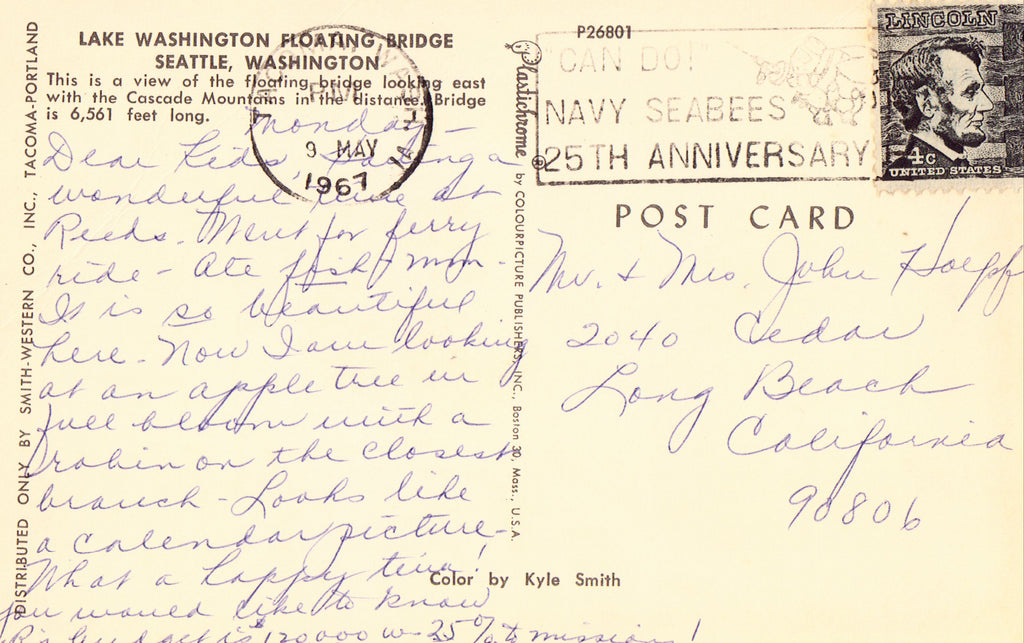 LAKE WASHINGTON FLOATING BRIDGE
SEATTLE, WASHINGTON
This is a view of the floating bridge looking east
with the Cascade Mountains in the distance. Bridge
is 6,561 feet long.
Monday -
Dear Kids, Having a
wonderful time at
Reeds. Went for ferry
ride - Ate fish - mm -
It is so beautiful
here - Now I am looking
at an apple tree in
full bloom with a
robin on the closest
branch - Looks like
a calendar picture -
What a happy time!
you would like to know
R's budget is $120000 w- 25% to missions!
DISTRIBUTED ONLY BY SMITH-WESTERN CO., INC., TACOMA-PORTLAND
TACOMA, WASH
PM
9 MAY
1967
1A
P26801
"CAN DO!"
NAVY SEABEES
25TH ANNIVERSARY
LINCOLN
4c
UNITED STATES
Plastichrome ® by COLOURPICTURE PUBLISHERS, INC., Boston 30, Mass., U.S.A.
POST CARD
Mr. & Mrs. John Hoepf
2040 Cedar
Long Beach
California
90806
Color by Kyle Smith